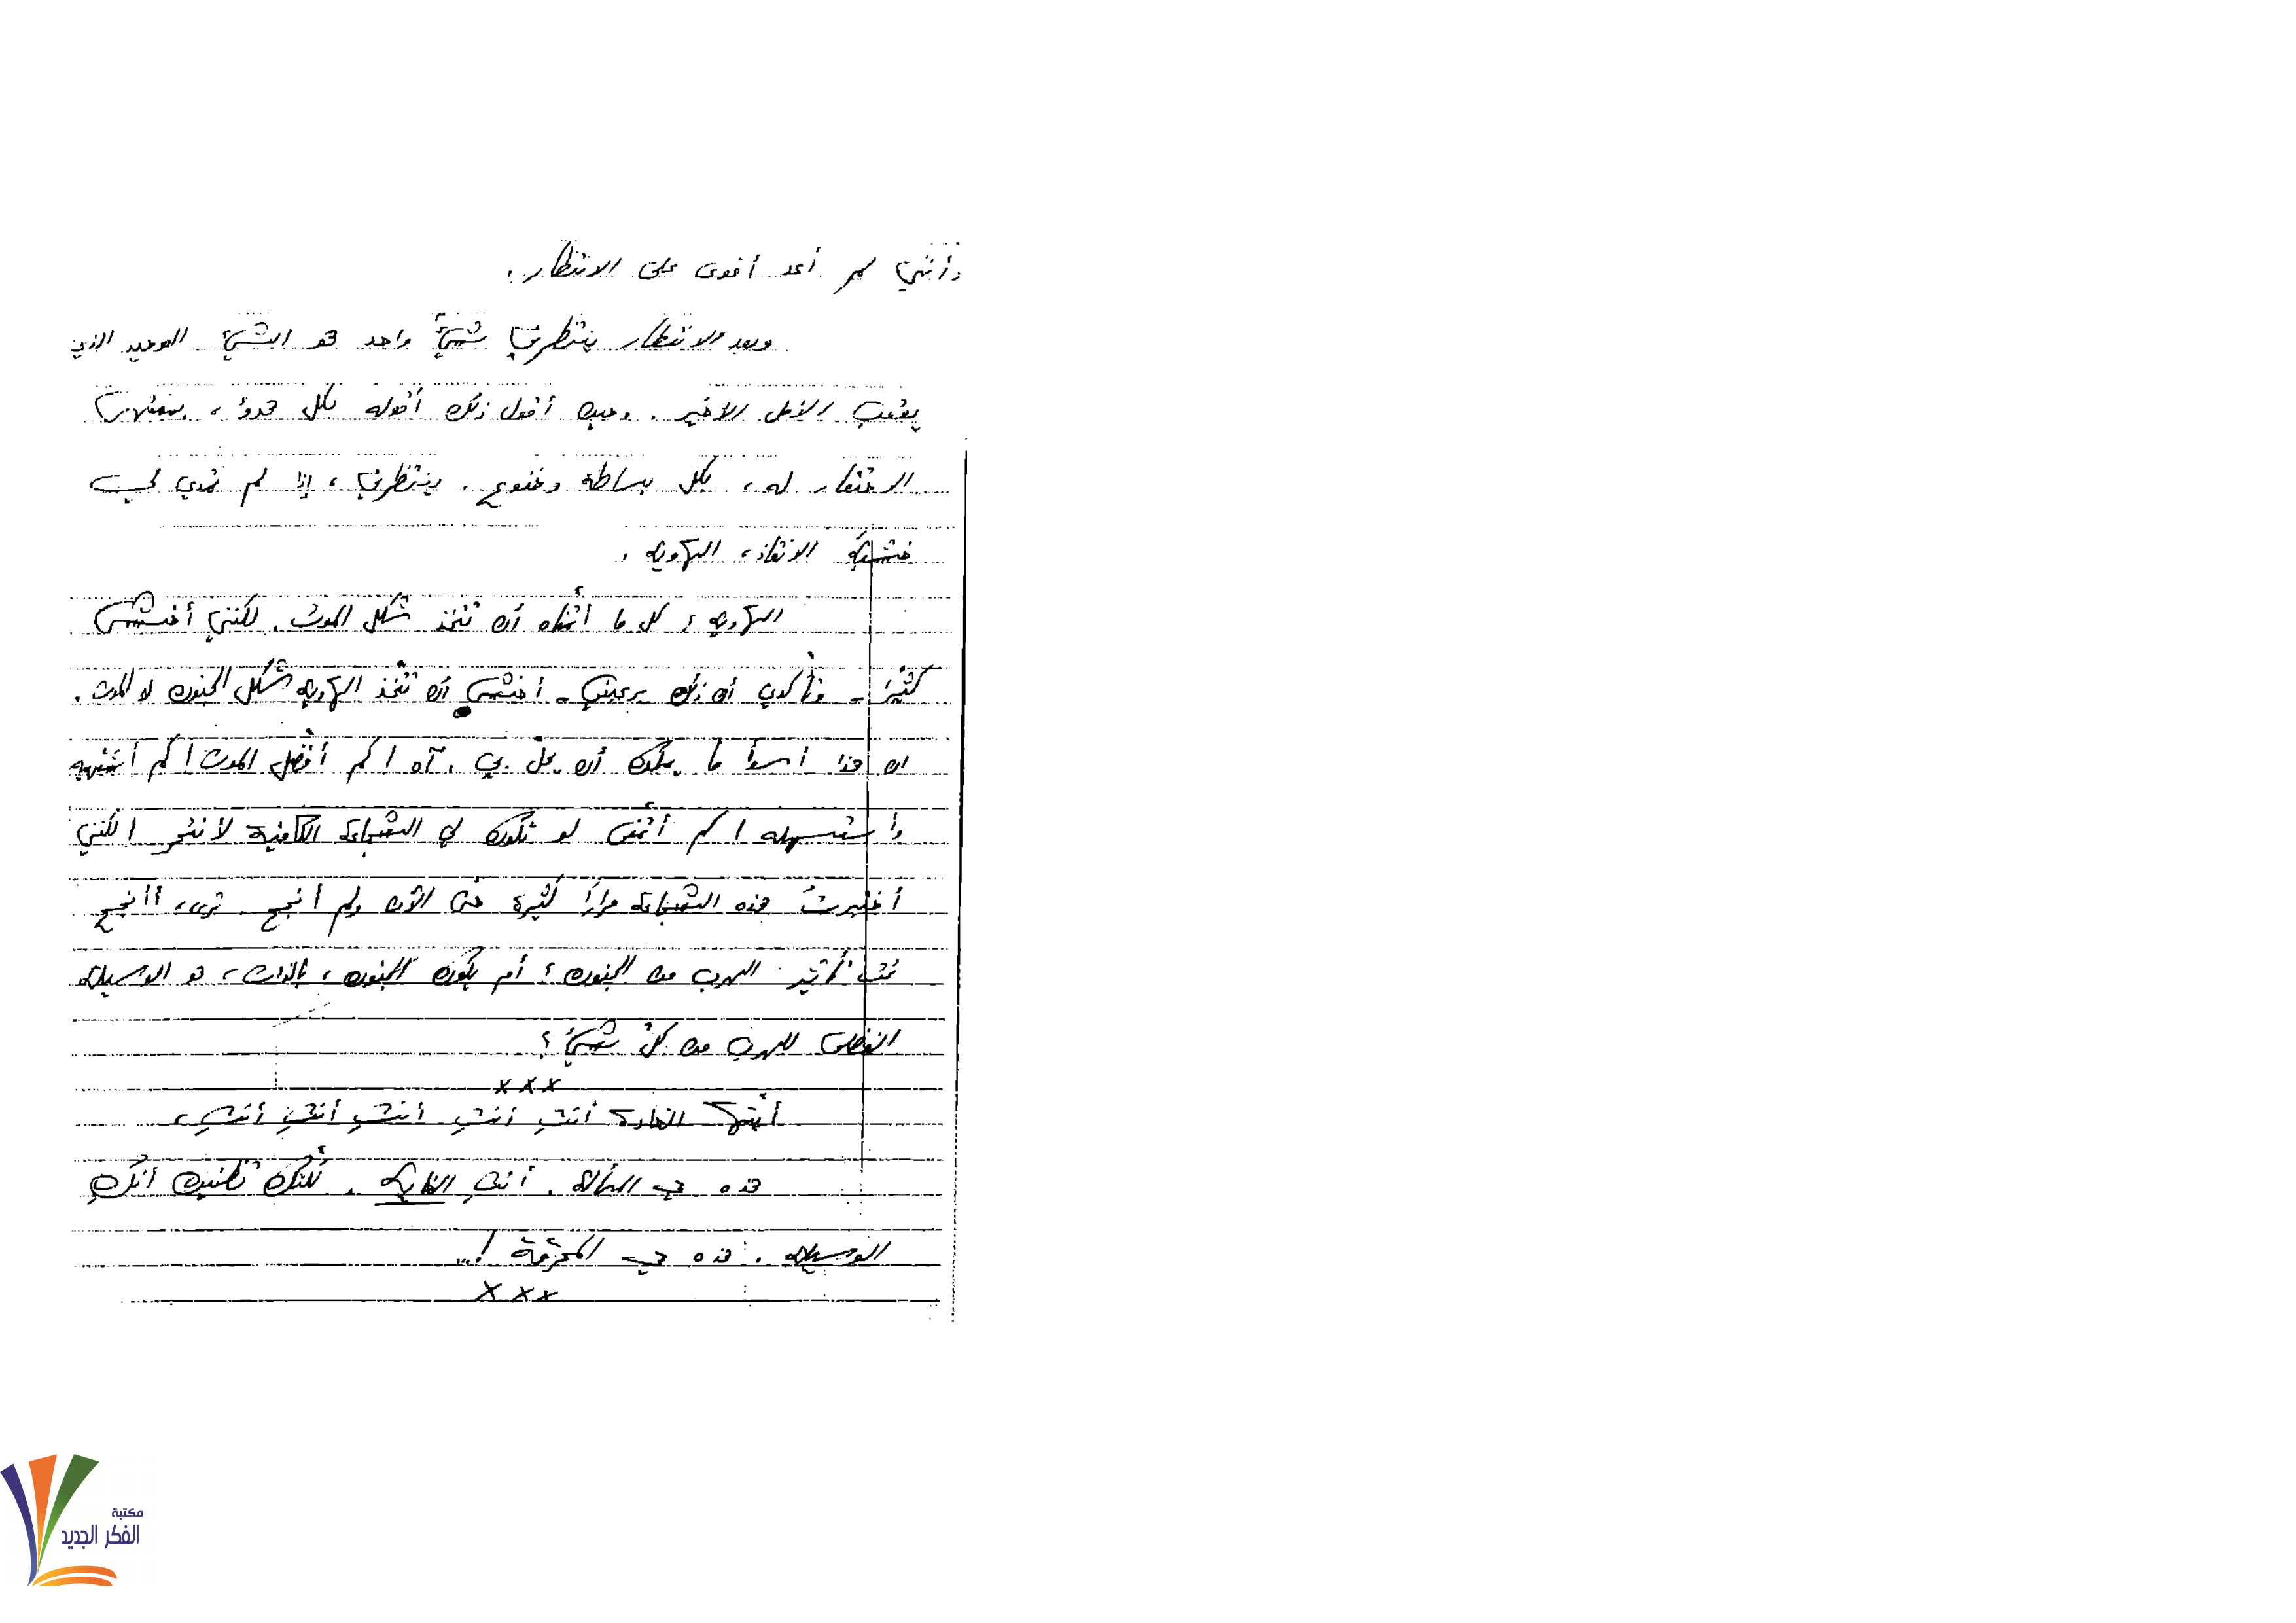 وأنني لم أعد أقوى على الانتظار.
وبعد الانتظار ينتظرني شيءٌ واحد هو الشيء الوحيد الذي
يعقب الأمل الأخير. وحين أقول ذلك أقوله بكل هدوء، بمنتهى
الاحتقار له، بكل بساطة وخنوع. ينتظرني، إذا لم تمدي لي
خشبة الانقاذ، الهاوية.
الهاوية؛ كل ما أتمناه أن تتخذ شكل الموت. لكنني أخشى
كثيراً - وتأكدي أن ذلك يرعبني - أخشى أن تتخذ الهاوية شكل الجنون لا الموت.
إن هذا أسوأ ما يمكن أن يحلّ بي. آه! كم أفضّل الموت! كم أشتهيه
وأستسهله! كم أتمنى لو تكون لي الشجاعة الكافية لأنتحر! لكنني
أختبرتُ هذه الشجاعة مراراً كثيرة حتى الآن ولم أنجح. ترى، أأنجح
تحت تأثير الهرب من الجنون؟ أم يكون الجنون، بالذات، هو الوسيلة
الفضلى للهرب من كلّ شيء؟
×××
أيتها الغادة أنتِ أنتِ أنتِ أنتِ أنتِ،
هذه هي المسألة. أنتِ الغاية. لكنّك تظنين أنكِ
الوسيلة. هذه هي المحرقة!...
×××
مكتبة
الفكر الجديد